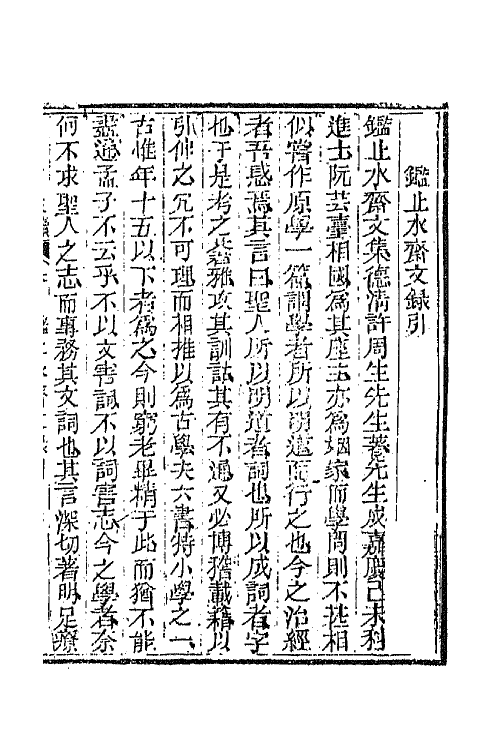 鑑止水齋文録引
鑑止水齋文集德清許周生先生著先生成嘉慶己未科
進士阮芸臺相國為其座主亦為姻家而學問則不甚相
似嘗作原學一篇謂學者所以明道而行之也今之治經
者吾惑焉其言曰聖人所以明道者詞也所以成詞者字
也于是考之蒼雅攻其訓詁其有不通又必博稽載籍以
引伸之冗不可理而相推以為古學夫六書特小學之一
古惟年十五以下者為之今則窮老畢精于此而猶不能
盡通孟子不云乎不以文害詞不以詞害志今之學者奈
何不求聖人之志而專務其文詞也其言深切著明足療